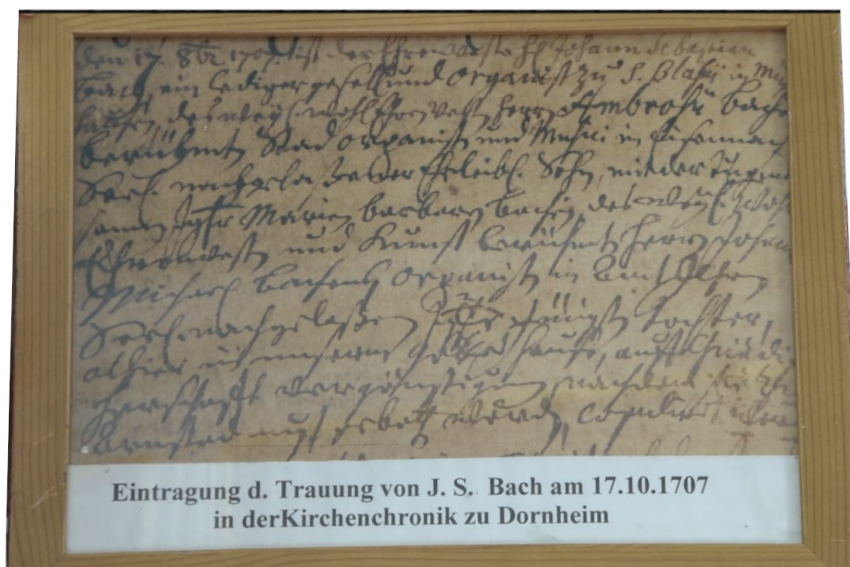 den 17. 8br 1707. ist der Ehrenveste Hr. Johann Sebastian
Bach, ein lediger gesell und Organist zu S. Blasii in Müh
hausen, des weyl. wohl Ehren vesten Herrn Ambrosii Bachen
berühmten Stad organisten und Musici in Eisenach
Seel. nachgelaßener Eheleibl. Sohn, mit der tugend
samen Jgfr. Marien Barbaren Bachin, des weyl. Wohl
Ehrenvesten und Kunst berühmten Herrn Johann
Michael Bachens Organisten in Amt Gehren
Seel. nachgelaßenen jüngsten Tochter,
alhier in unserm Gottes Hause, auff Gnädi
Herrschafft vergünstigung, nachdem sie zu
Arnstad worden, copuliret
Eintragung d. Trauung von J. S. Bach am 17.10.1707
in derKirchenchronik zu Dornheim